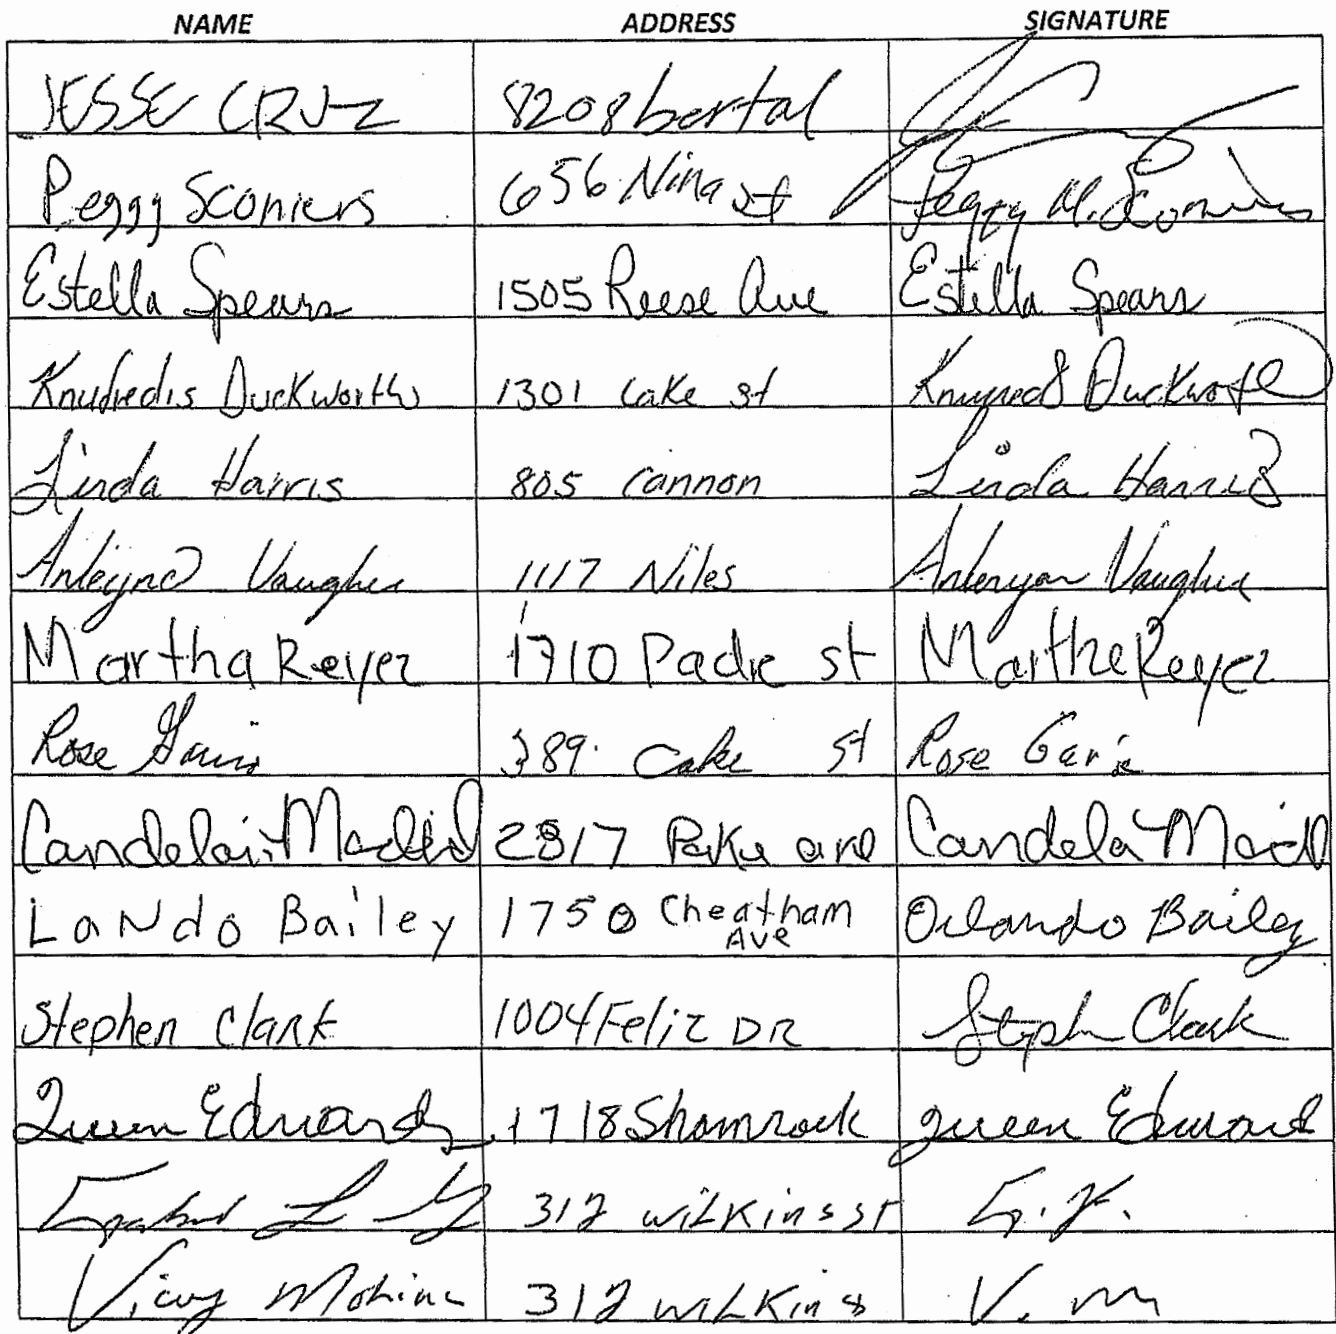 NAME ADDRESS SIGNATURE
JESSE CRUZ 8208 bertal
Peggy Sconiers 656 Nina st Peggy M. Sconiers
Estella Spears 1505 Reese Ave Estella Spears
Knudredis Duckworth 1301 Cake st Duckworth
Linda Harris 805 Cannon Linda Harris
Vaughn 1117 Niles Vaughn
Martha Reyez 1710 Padre st Martha Reyez
Rose 389 Cake st Rose
2817 ave
LaNdo Bailey 1750 Cheatham Ave Orlando Bailey
Stephen Clark 1004 Feliz DR Stephen Clark
Queen Edwards 1718 Shamrock Queen Edward
312 wilkins st
Molina 312 wilkins V. M